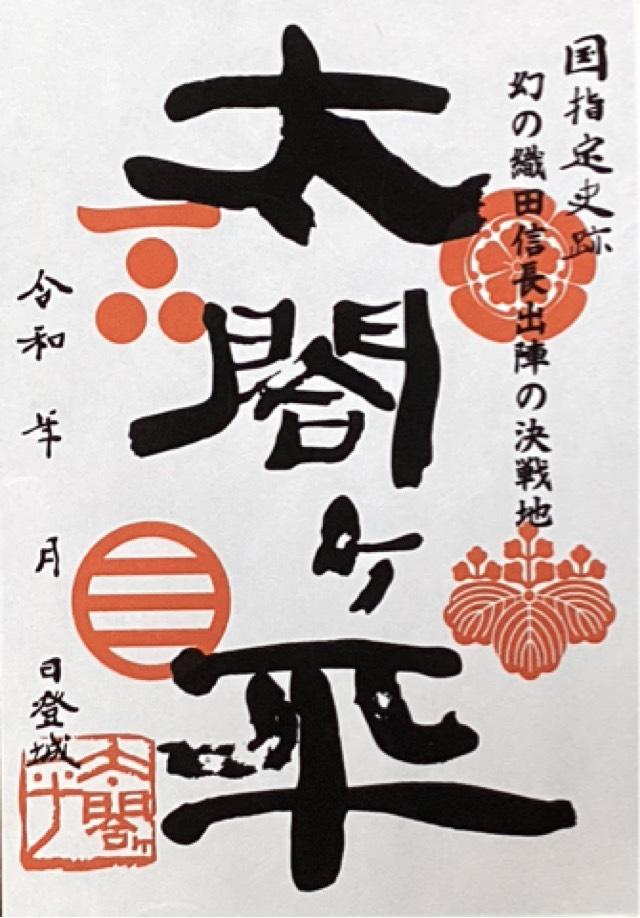 国指定史跡
幻の織田信長出陣の決戦地
太閤ヶ平
令和 年 月 日登城
太閤ヶ平